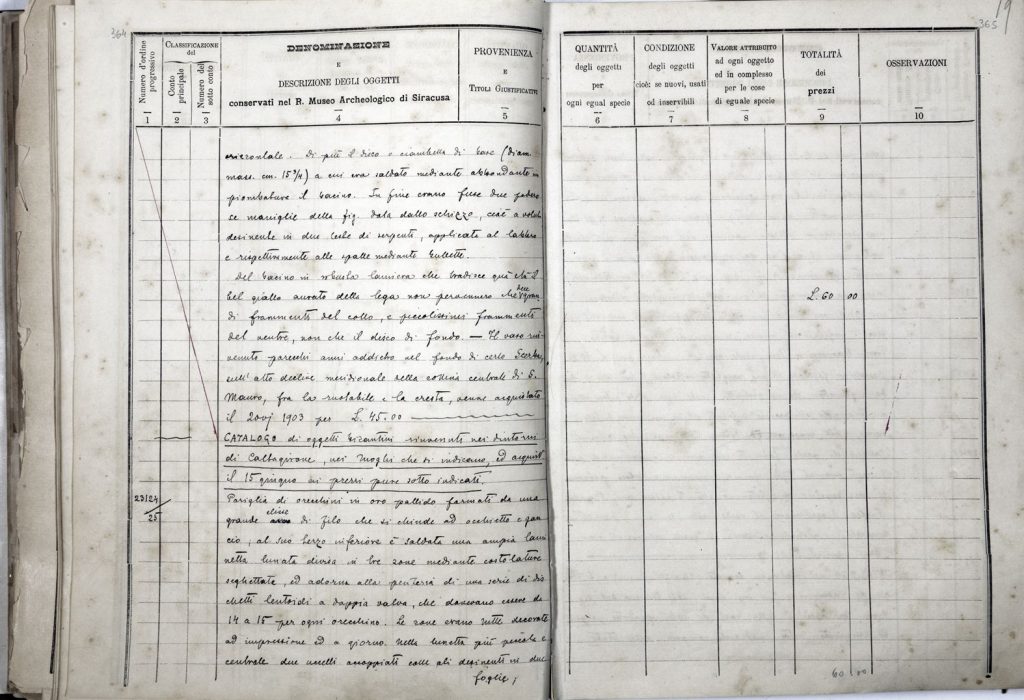 364
Numero d'ordine progressivo
CLASSIFICAZIONE del
Conto principale
Numero del sotto conto
DENOMINAZIONE
E
DESCRIZIONE DEGLI OGGETTI
conservati nel R. Museo Archeologico di Siracusa
PROVENIENZA
E
TITOLI GIUSTIFICATIVI
1 2 3 4 5
orizzontale. Di più il disco o ciambella di base (diam.
mass. cm. 15 3/4) a cui era saldato mediante abbondante im
piombatura il bacino. In fine erano fuse due podero
se maniglie della fig. data dallo schizzo, cioè a volute
desinente in due teste di serpenti, applicate al labbro
e rispettivamente alle spalle mediante bullette.
Del bacino in robusta lamiera che tradisce quà e là il
bel giallo aurato della lega non pervennero che due gran
di frammenti del collo, e piccolissimi frammenti
del ventre, non che il disco di fondo. — Il vaso rin-
venuto parecchi anni addietro nel fondo di certo
sull'alto declive meridionale della collina centrale di S.
Mauro, fra la ruotabile e la cresta, venne acquistato
il 1903 per L. 45.00
CATALOGO di oggetti bizantini rinvenuti nei dintorni
di Caltagirone, nei luoghi che si indicano, ed acquist.
il 15 giugno ai prezzi pure sotto indicati.
23124/25
Pariglia di orecchini in oro pallido formati da una
grande di filo che si chiude ad occhietto e gan
cio, al suo terzo inferiore è saldata una ampia lam
netta lunata divisa in tre zone mediante costolature
seghettate, ed adorna alla periferia di una serie di dis
chetti lentoidi a doppia valva, che dovevano essere da
14 a 15 per ogni orecchino. Le zone erano tutte decorate
ad impressione ed a giorno. Nella lunetta più piccola e
centrale due uccelli accoppiati colle ali desinenti in due
foglie,
365
19
QUANTITÀ
degli oggetti
per
ogni egual specie
CONDIZIONE
degli oggetti
cioè: se nuovi, usati
od inservibili
VALORE ATTRIBUITO
ad ogni oggetto
od in complesso
per le cose
di eguale specie
TOTALITÀ
dei
prezzi
OSSERVAZIONI
6 7 8 9 10
L. 60 00
60.00